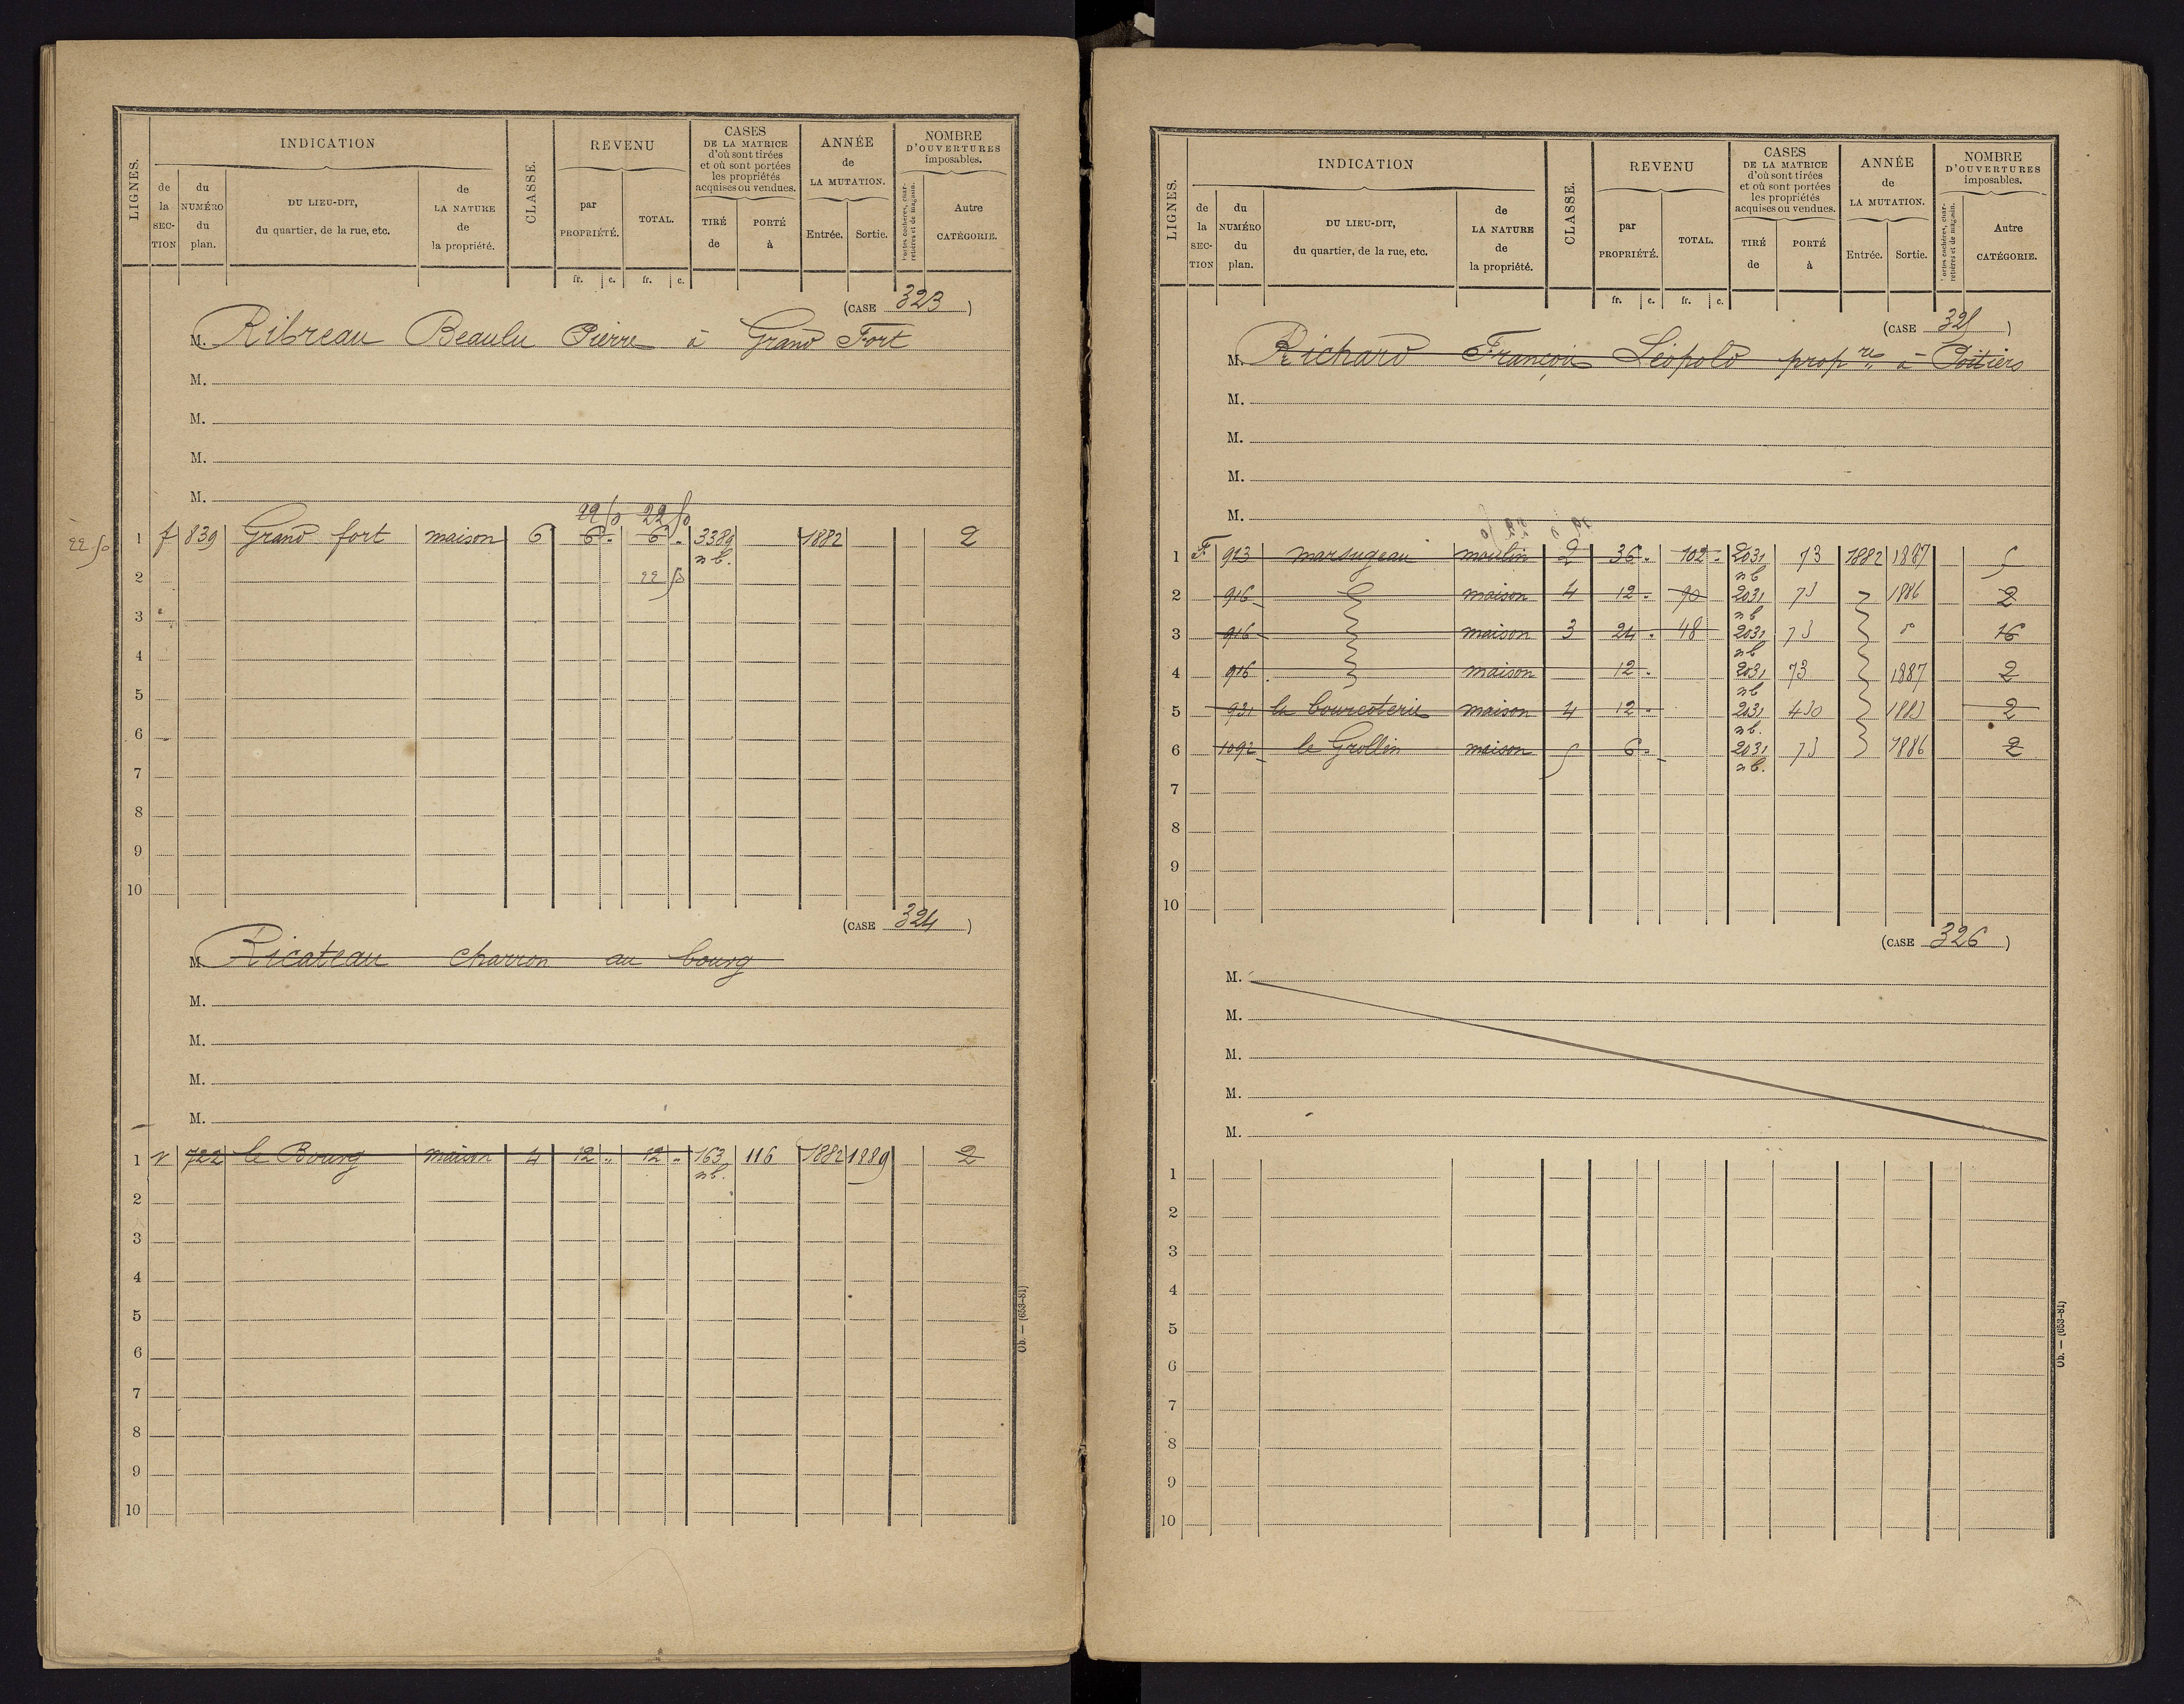 LIGNES.
INDICATION
CLASSE.
REVENU
CASES
DE LA MATRICE
d'où sont tirées
et où sont portées
les propriétés
acquises ou vendues.
ANNÉE
de
LA MUTATION.
NOMBRE
D'OUVERTURES
imposables.
de la SECTION
du NUMÉRO du plan.
DU LIEU-DIT,
du quartier, de la rue, etc.
de LA NATURE de la propriété.
par PROPRIÉTÉ.
TOTAL.
TIRÉ de
PORTÉ à
Entrée.
Sortie.
Portes cochères, charretières et de magasin.
Autre CATÉGORIE.
fr. c. fr. c.
(CASE 323)
M. Ribreau Beaulu Pierre à Grand Fort
M.
M.
M.
M.
22 50 22 50
22 50 1 f 839 Grand fort maison 6 6 " 6 " 3389 1882 2
nb.
2 22 50
3
4
5
6
7
8
9
10
(CASE 324)
M. Ricateau charron au bourg
M.
M.
M.
M.
1 V 722 le Bourg maison 4 12 " 12 " 163 116 1882 1889 2
nb.
2
3
4
5
6
7
8
9
10
Ob. — (653-81)
LIGNES.
INDICATION
CLASSE.
REVENU
CASES
DE LA MATRICE
d'où sont tirées
et où sont portées
les propriétés
acquises ou vendues.
ANNÉE
de
LA MUTATION.
NOMBRE
D'OUVERTURES
imposables.
de la SECTION
du NUMÉRO du plan.
DU LIEU-DIT,
du quartier, de la rue, etc.
de LA NATURE de la propriété.
par PROPRIÉTÉ.
TOTAL.
TIRÉ de
PORTÉ à
Entrée.
Sortie.
Portes cochères, charretières et de magasin.
Autre CATÉGORIE.
fr. c. fr. c.
(CASE 325)
M. Richard François Léopold propre à Poitiers
M.
M.
M.
M.
1 F 913 marsugeau moulin 2 36 " 102 " 2031 73 1882 1887 5
nb
2 916 maison 4 12 " 90 2031 73 1886 2
nb
3 916 maison 3 24 " 48 2031 73 16
nb
4 916 maison 12 " 2031 73 1887 2
nb
5 931 la bourcoterie maison 4 12 " 2031 430 1883 2
nb.
6 1092 le Grollin maison 5 6 " 2031 73 1886 2
nb.
7
8
9
10
(CASE 326)
M.
M.
M.
M.
M.
1
2
3
4
5
6
7
8
9
10
Ob. — (653-81)